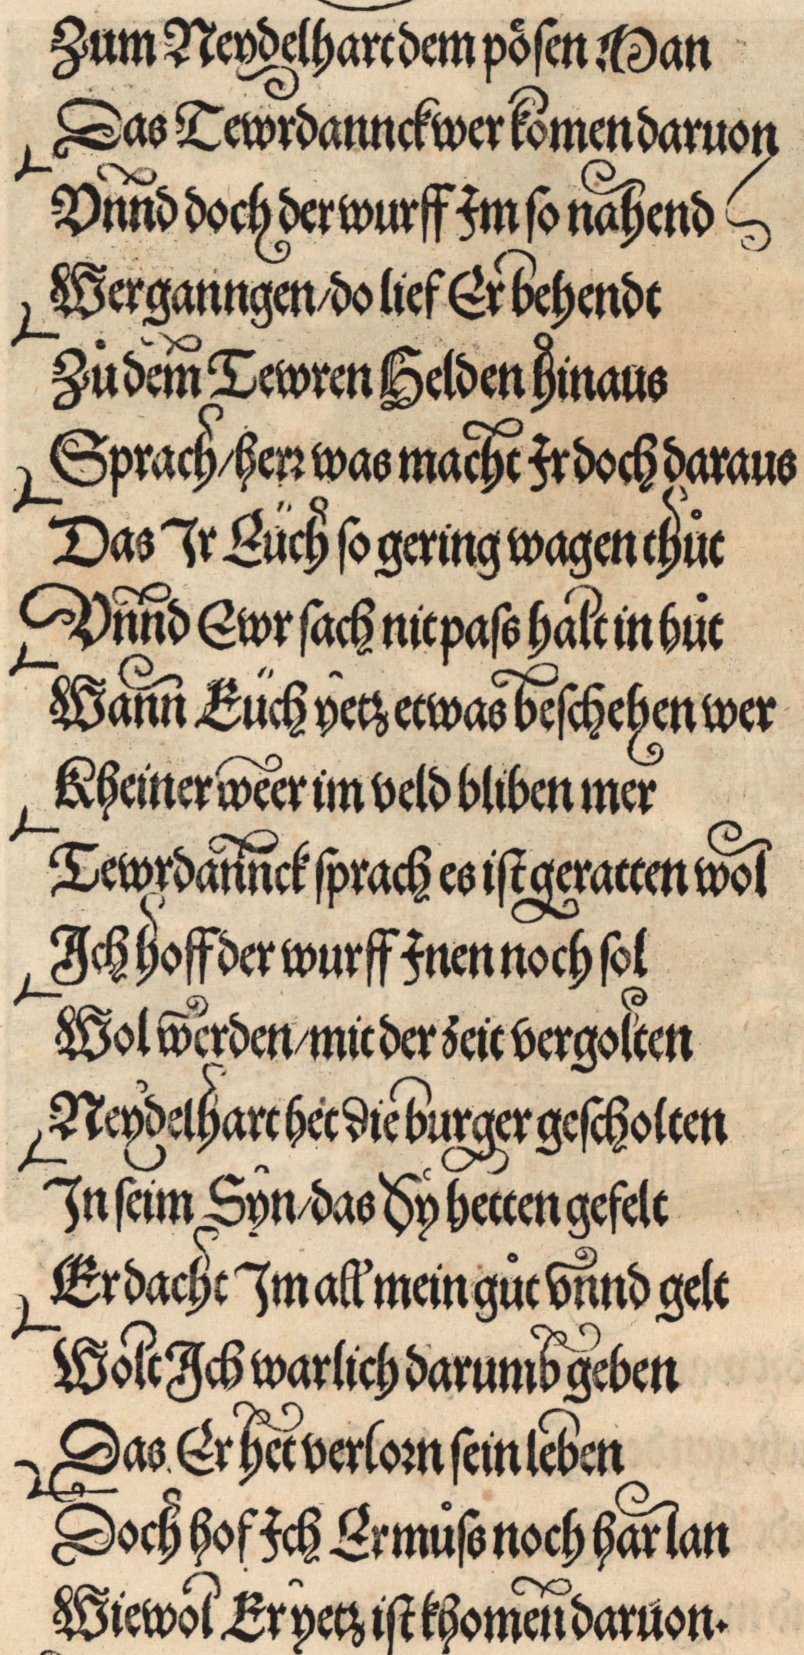 Zum Neydelhart dem pösen Man
Das Tewrdannck wer komen daruon
Vnnd doch der wurff Im so nahend
Wer ganngen/do lief Er behendt
Zů dem Tewren Helden hinaus
Sprach/herr was macht Ir doch daraus
Das Ir Eüch so gering wagen thůt
Vnnd Ewr sach nit pass halt in hůt
Wann Eüch yetz etwas beschehen wer
Kheiner weer im veld bliben mer
Tewrdannck sprach es ist geratten wol
Ich hoff der wurff Inen noch sol
Wol werden/mit der zeit vergolten
Neydelhart het die burger gescholten
In seim Syn/das Sy hetten gefelt
Er dacht Im all mein gůt vnnd gelt
Wolt Ich warlich darumb geben
Das Er het verlorn sein leben
Doch hof Ich Er můss noch har lan
Wiewol Er yetz ist khomen daruon.